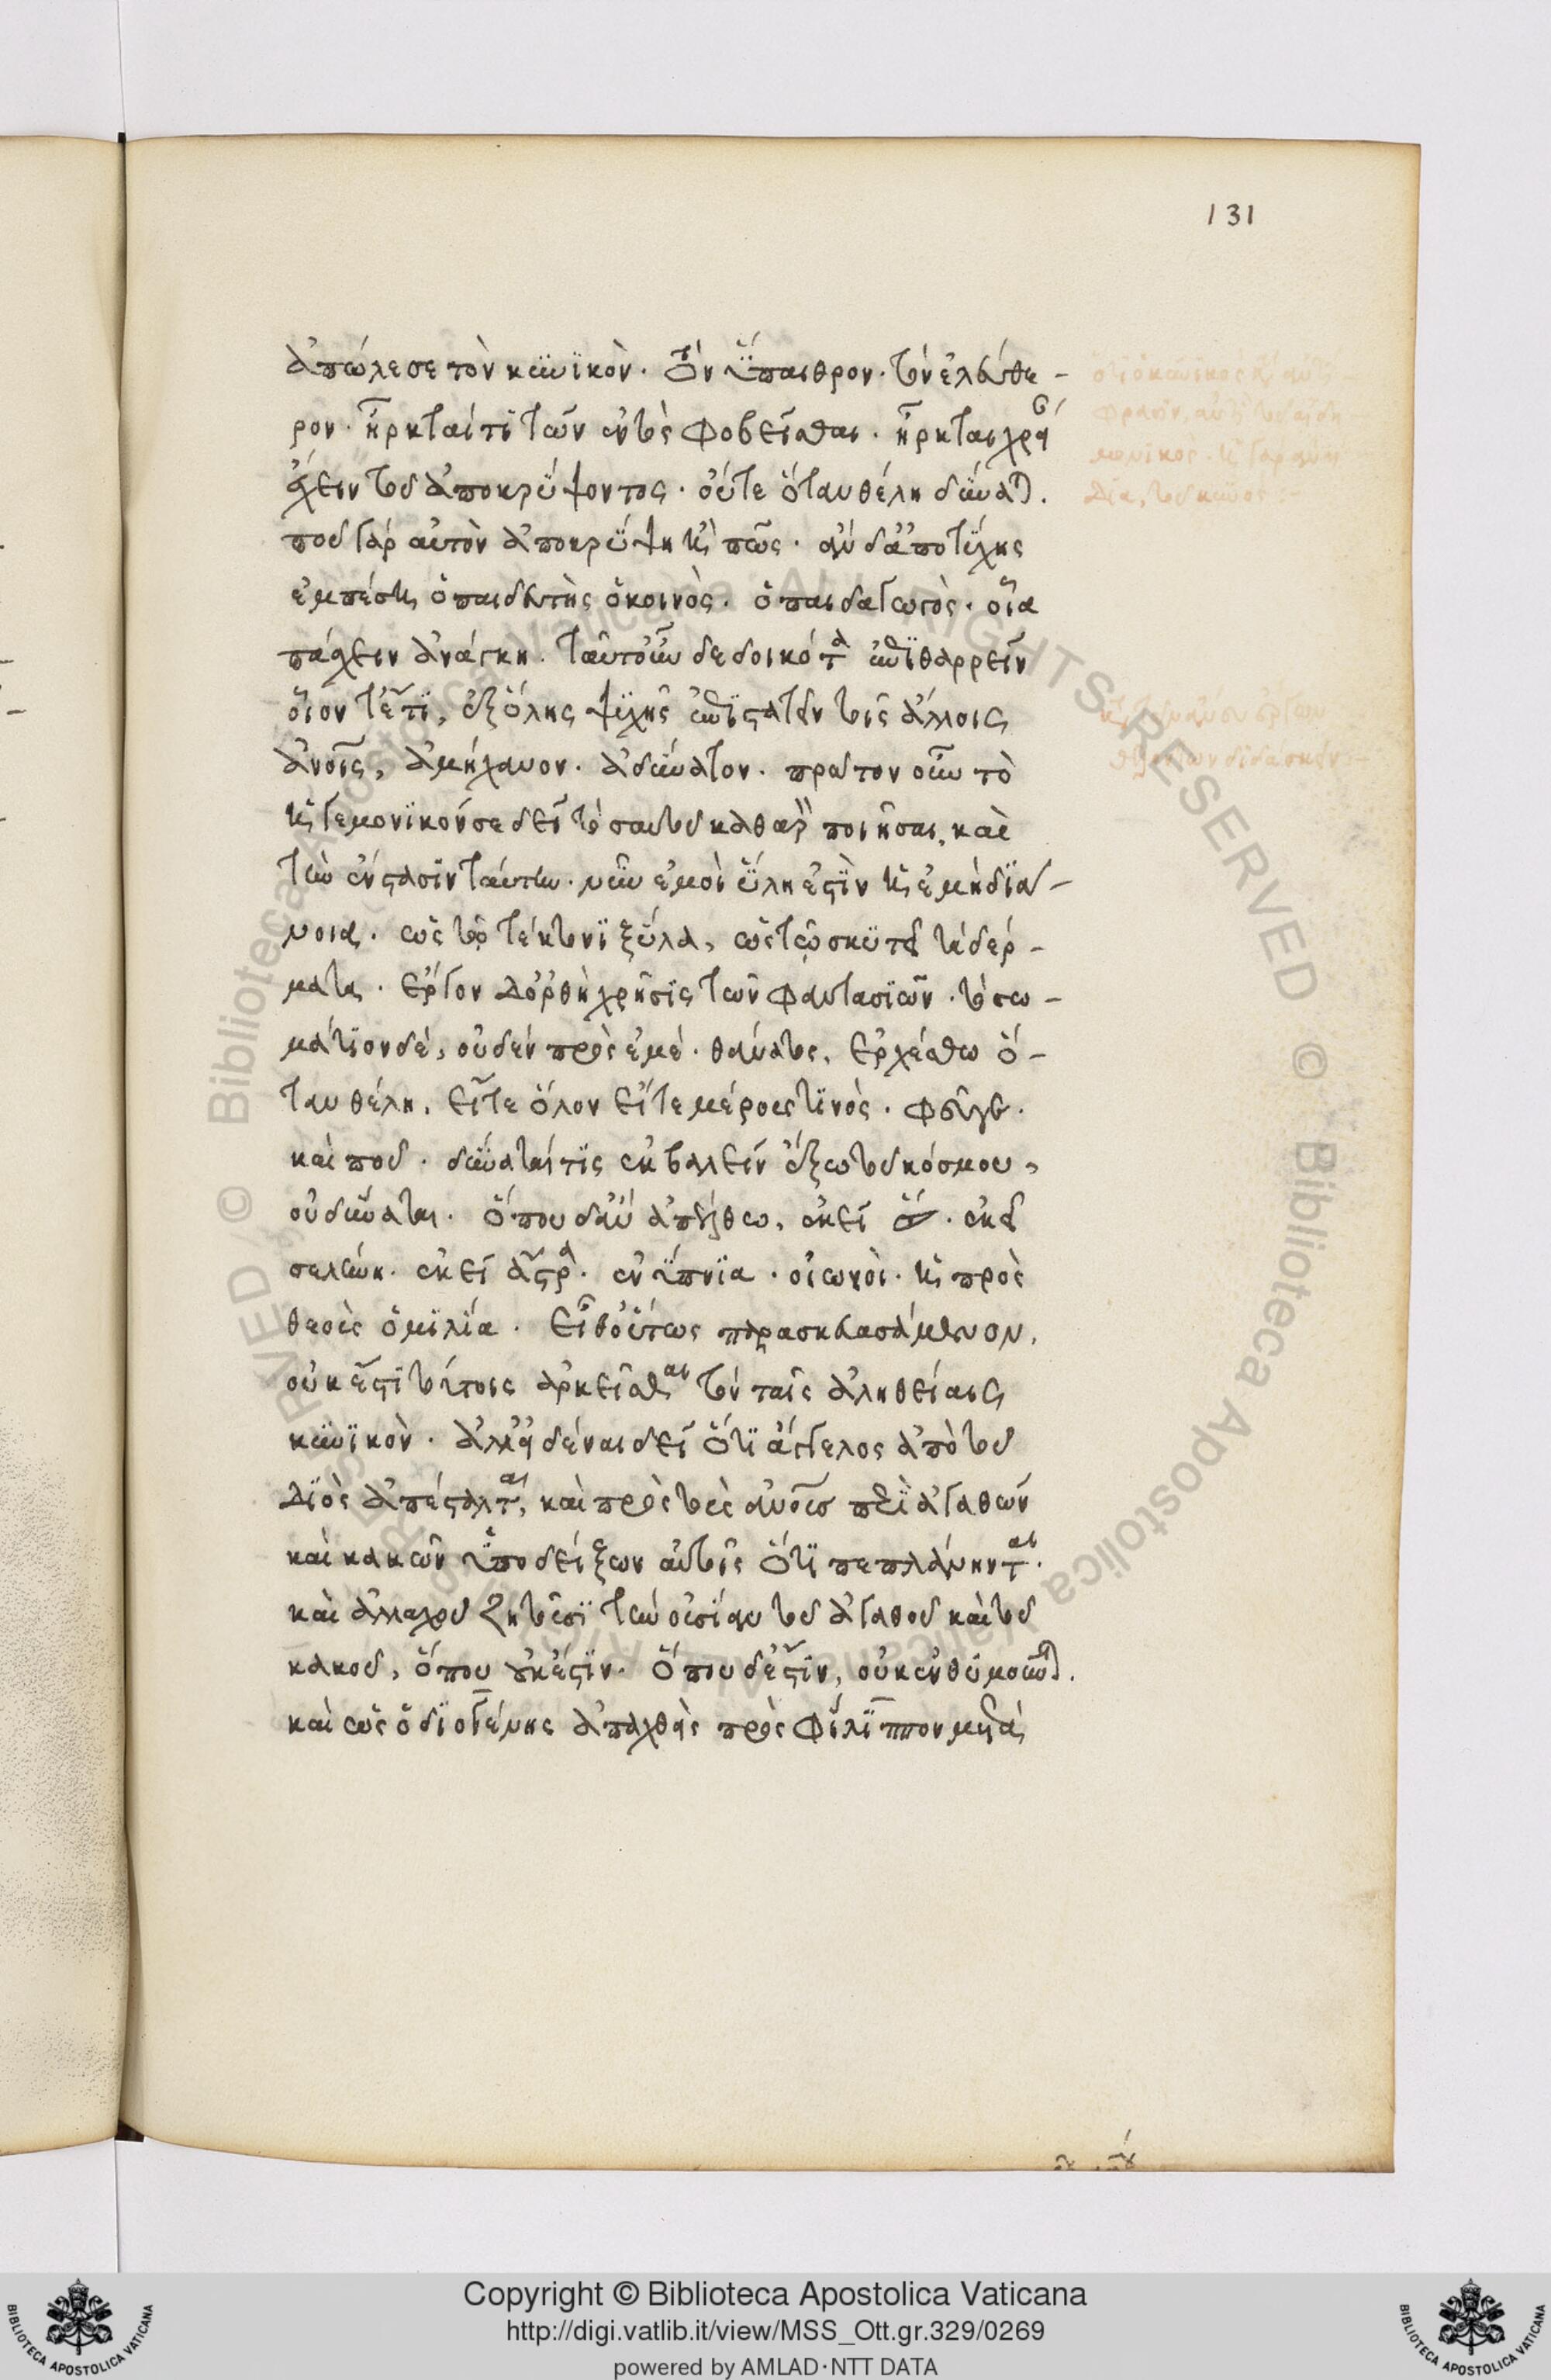 131
ἀπώλεσε τὸν κϋνϊκὸν. τὸν ὕπαιθρον. τὸν ἐλεύθε-
ρον. ἦρκταί τϊ τῶν ἐκτὸς φοβεῖσθαι. ἦρκται χρείαν
ἔχειν τοῦ ἀποκρύψοντος. οὔτε ὅταν θέλη δύναται.
ποῦ γὰρ αὑτὸν ἀποκρύψη καὶ πῶς. ἂν δ' ἀπὸ τύχης
ἐμπέση ὁ παιδευτὴς ὁ κοινὸς. ὁ παιδαγωγὸς. οἷα
πάσχειν ἀνάγκη. ταῦτ' οὖν δεδοικότα ἐπϊθαρρεῖν
οἷόν τ' ἔτϊ, ἐξ ὅλης ψυχῆς ἐπϊστατεῖν τοῖς ἄλλοις
ἀνοις, ἀμήχανον. ἀδύνατον. πρῶτον οὖν τὸ
ἡγεμονϊκόν σε δεῖ τὸ σαυτοῦ καθαρὸν ποιῆσαι, καὶ
τὴν ἔνστασϊν ταύτην. νῦν ἐμοὶ ὕλη ἐστὶν ἡ ἐμὴ δϊά-
νοια. ὡς τῶ τέκτονϊ ξύλα, ὡς τῶ σκυτεῖ τὰ δέρ-
ματα. ἔργον δ' ὀρθὴ χρῆσϊς τῶν φαντασϊῶν. τὸ σω-
μάτϊον δέ, οὐδὲν πρὸς ἐμέ. θάνατος, ἐρχέσθω ὅ-
ταν θέλη, εἴτε ὅλου εἴτε μέρους τϊνὸς. φεῦγε.
καὶ ποῦ. δύναταί τϊς ἐκβαλεῖν ἔξω τοῦ κόσμου,
οὐ δύναται. ὅπου δ' ἂν ἀπέλθω, ἐκεῖ ἥλιος. ἐκεῖ
σελήνη. ἐκεῖ ἄστρα. ἐνύπνϊα. οἰωνοὶ. ἡ πρὸς
θεοὺς ὁμϊλία. εἶθ' οὕτως παρασκευασάμενον,
οὐκ ἔστϊ τούτοις ἀρκεῖσθαι τὸν ταῖς ἀληθείαις
κϋνϊκὸν. ἀλλ' εἰδέναι δεῖ ὅτϊ ἄγγελος ἀπὸ τοῦ
Δϊὸς ἀπέσταλται, καὶ πρὸς τοὺς ἀνους περὶ ἀγαθῶν
καὶ κακῶν ὑποδείξων αὐτοῖς ὅτϊ πεπλάνηνται.
καὶ ἀλλαχοῦ ζητοῦσϊ τὴν οὐσίαν τοῦ ἀγαθοῦ καὶ τοῦ
κακοῦ, ὅπου οὐκ ἔστϊν. ὅπου δ' ἔστϊν, οὐκ ἐνθυμοῦνται.
καὶ ὡς ὁ δϊογένης ἀπαχθεὶς πρὸς Φίλϊππον μετὰ
Copyright © Biblioteca Apostolica Vaticana
http://digi.vatlib.it/view/MSS_Ott.gr.329/0269
powered by AMLAD·NTT DATA